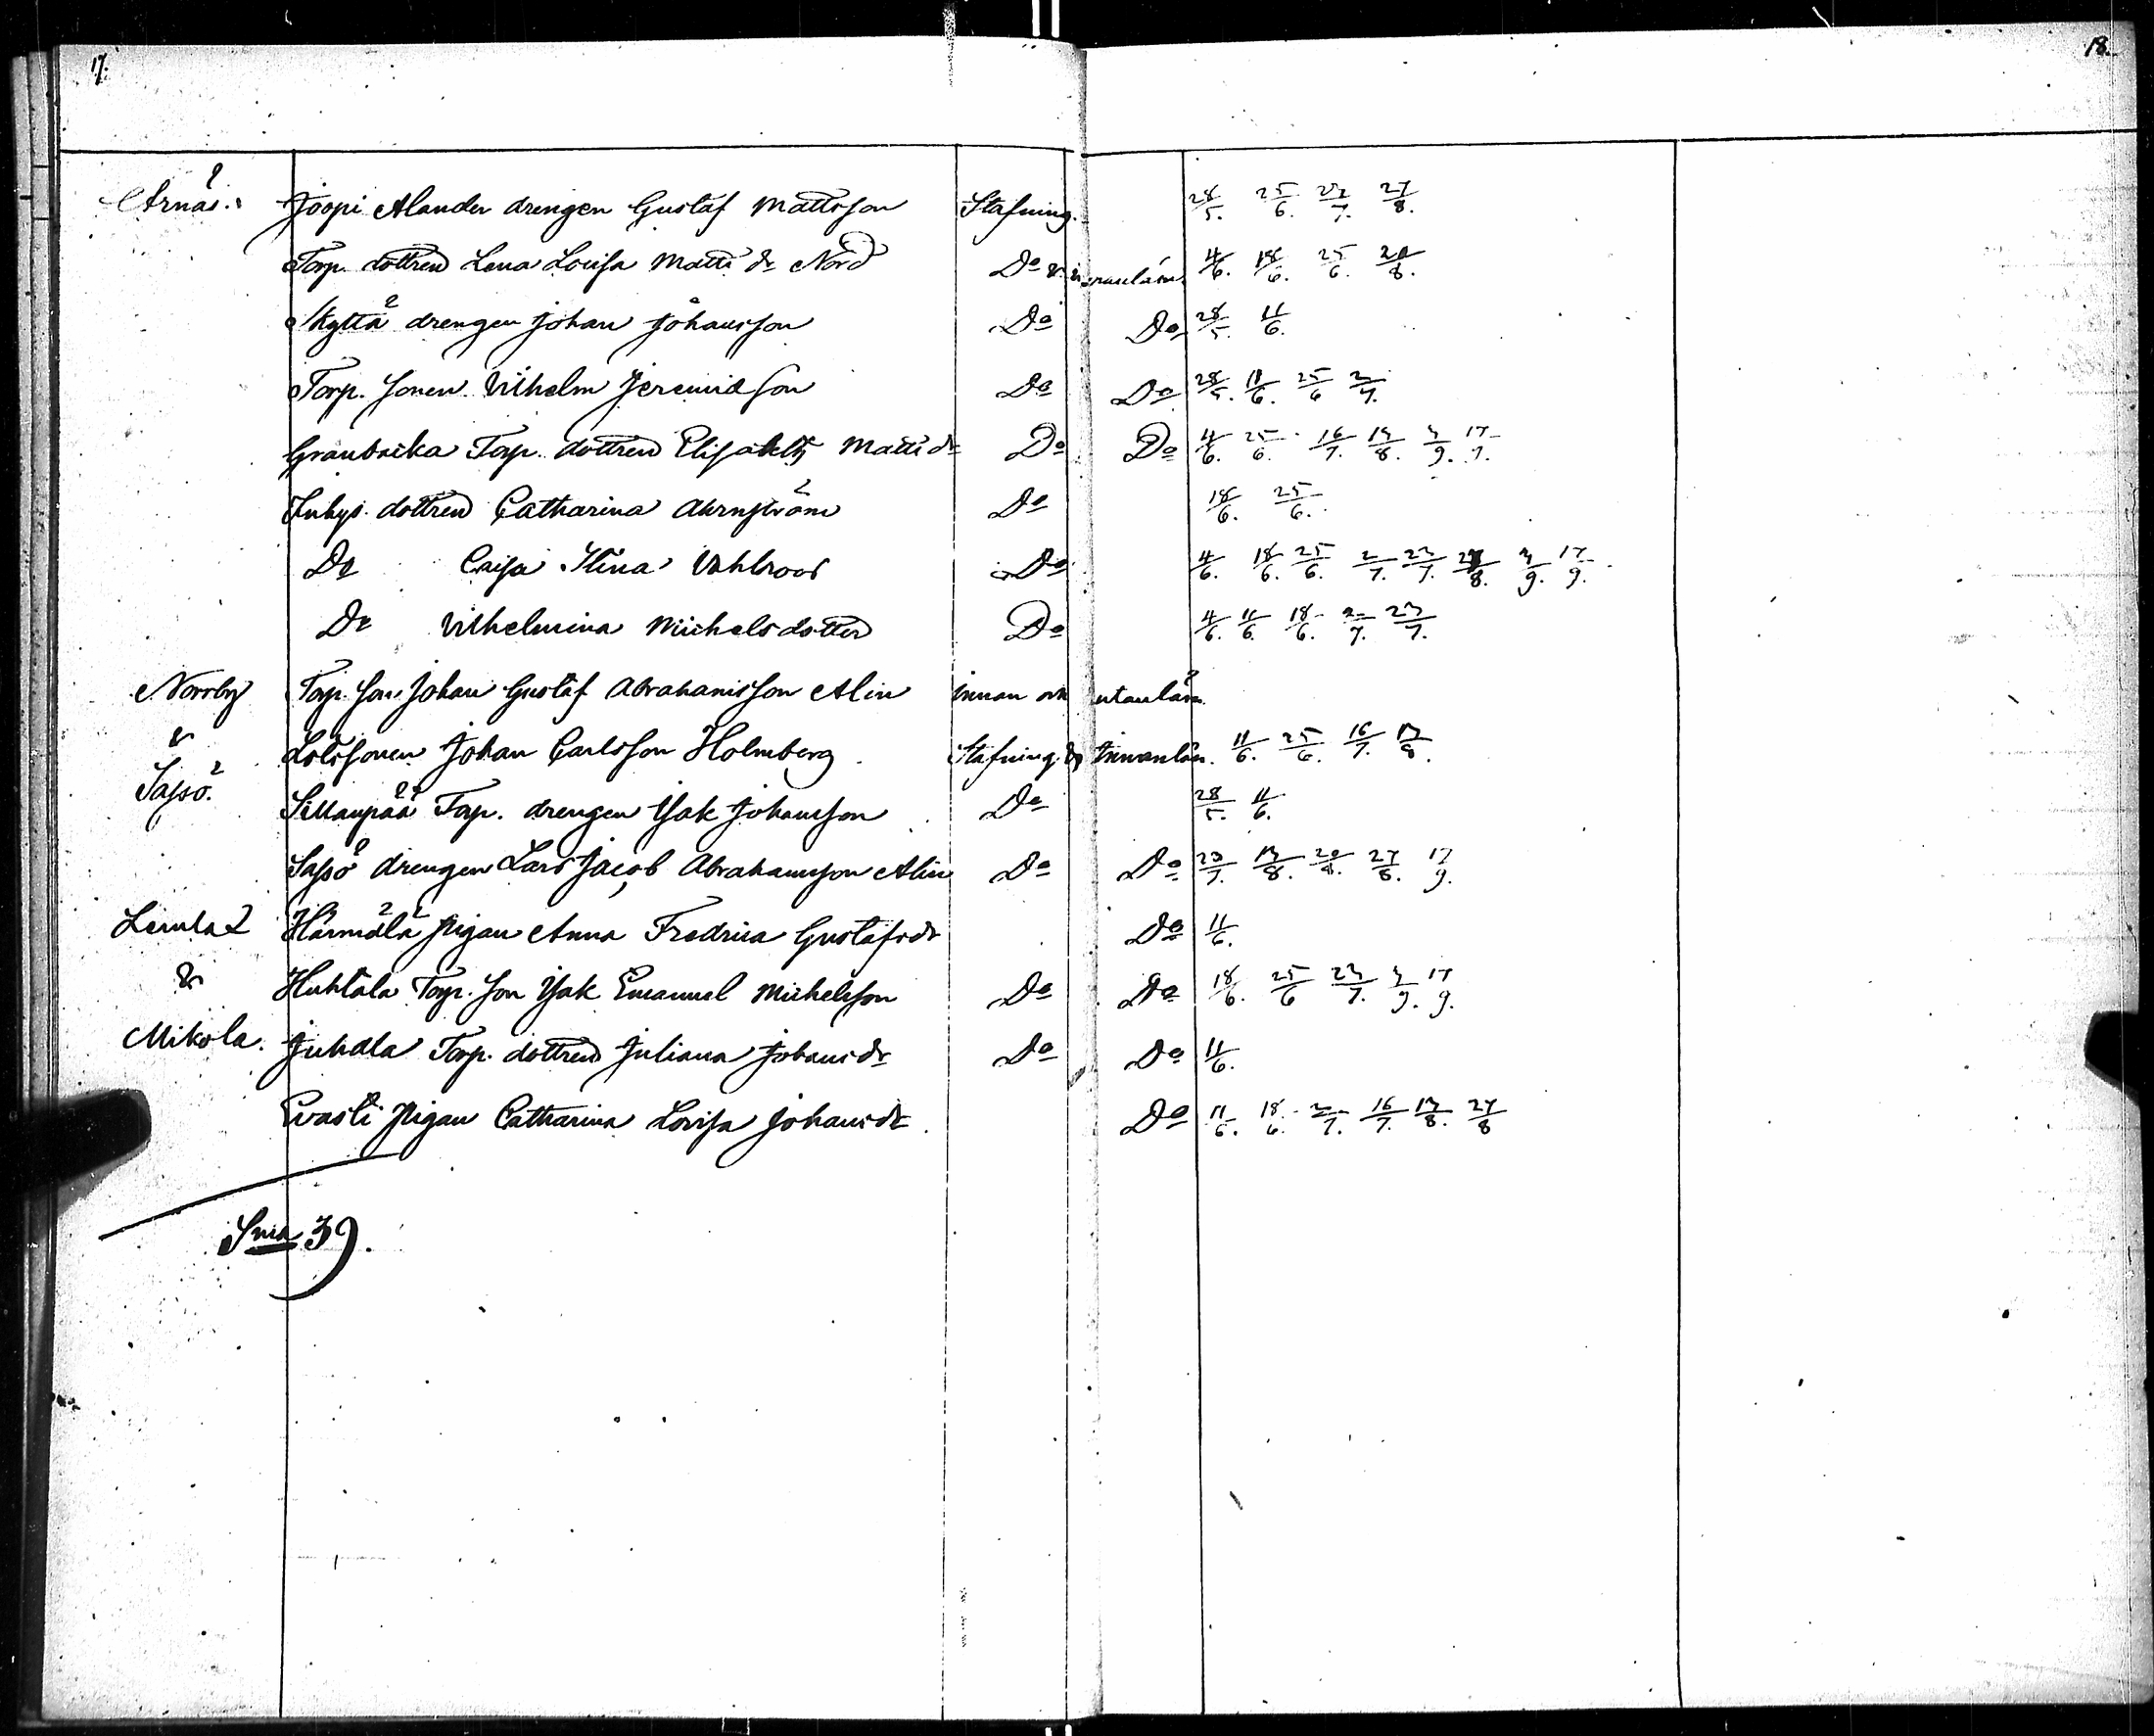 17. 18.
Arnäs. Joopi Alander drengen Gustaf Mattsson Stafning. 28/5. 25/6. 23/7. 27/8.
Torp. dottren Lena Lovisa Matts dr Nord Do & innanläsn. 4/6. 18/6. 25/6. 20/8.
Skyttä drengen Johan Johansson Do Do 28/5. 11/6.
Torp. sonen Vilhelm Jeremiasson Do Do 28/5. 11/6. 25/6 2/7.
Granbacka Torp. dottren Elisabeth Matts dr Do Do 4/6. 25/6. 16/7. 13/8. 3/9. 17/9.
Inhys. dottren Catharina Ahrnström Do 18/6. 25/6.
Do Caisa Stina Vahlroos Do 4/6. 18/6. 25/6. 2/7. 23/7. 27/8. 3/9. 17/9.
Do Vilhelmina Michelsdotter Do 4/6. 11/6. 18/6. 2/7. 23/7.
Norrby Torp. son Johan Gustaf Abrahamsson Alin innan och utanläsn.
& Lotssonen Johan Carlsson Holmberg Stafning & Innanläsn. 11/6. 25/6. 16/7. 13/8.
Sassö. Sillanpää Torp. drengen Isak Johansson Do 28/5. 11/6.
Sassö drengen Lars Jacob Abrahamsson Alin Do Do 23/7. 13/8. 20/8. 27/8. 17/9.
Lemla Härmälä pigan Anna Fredrica Gustafsdr Do 11/6.
& Huhtala Torp. son Isak Emanuel Michelsson Do Do 18/6. 25/6 23/7. 3/9. 17/9.
Mikola. Juhala Torp. dottren Juliana Johansdr Do Do 11/6.
Evasti pigan Catharina Lovisa Johansdr. Do 11/6. 18/6. 2/7. 16/7. 13/8. 27/8
Sma 39.